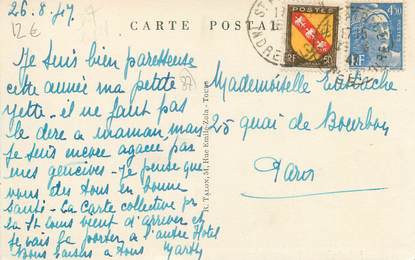 26.8.47
12€
CARTE POSTALE
Je suis bien paresseuse
cette année ma petite
Yette - il ne faut pas
le dire à maman, mais
je suis encore agacée par
mes gencives - Je pense que
vous êtes tous en bonne
Santé - La Carte collective pr
la St Louis vient d'arriver et
je vais la porter à l'autre Hotel
Bons baisers à tous
Mademoiselle
25 quai de Bourbon
Paris
R. TALON, 51, Rue Emile-Zola - Tours
POSTES
RF
50
4,50
RF
INDRE